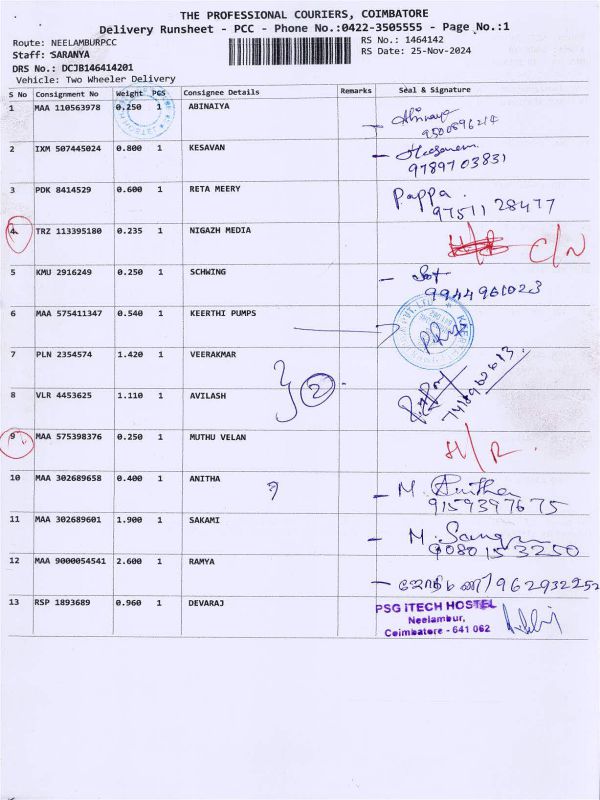 THE PROFESSIONAL COURIERS, COIMBATORE
Delivery Runsheet - PCC - Phone No.:0422-3505555 - Page No.:1
Route: NEELAMBURPCC
RS No.: 1464142
Staff: SARANYA
RS Date: 25-Nov-2024
DRS No.: DCJB146414201
Vehicle: Two Wheeler Delivery
S No Consignment No Weight PCS Consignee Details Remarks Seal & Signature
1 MAA 110563978 0.250 1 ABINAIYA
9500896214
2 IXM 507445024 0.800 1 KESAVAN
9789703831
3 PDK 8414529 0.600 1 RETA MEERY Pappa.
9751128477
4 TRZ 113395180 0.235 1 NIGAZH MEDIA C/N
5 KMU 2916249 0.250 1 SCHWING
9944961023
6 MAA 575411347 0.540 1 KEERTHI PUMPS
7 PLN 2354574 1.420 1 VEERAKMAR
2
8 VLR 4453625 1.110 1 AVILASH
9 MAA 575398376 0.250 1 MUTHU VELAN H/R.
10 MAA 302689658 0.400 1 ANITHA M. Anitha
9159397675
11 MAA 302689601 1.900 1 SAKAMI M.
9080153250
12 MAA 9000054541 2.600 1 RAMYA ஜோதிமணி / 962932252
13 RSP 1893689 0.960 1 DEVARAJ PSG iTECH HOSTEL
Neelambur,
Coimbatore - 641 062